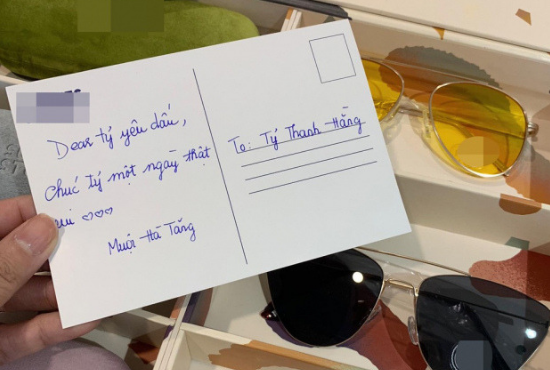 Dear tý yêu dấu,
Chúc tý một ngày thật
vui ♡♡♡
Muội Hà Tăng
To: Tý Thanh Hằng